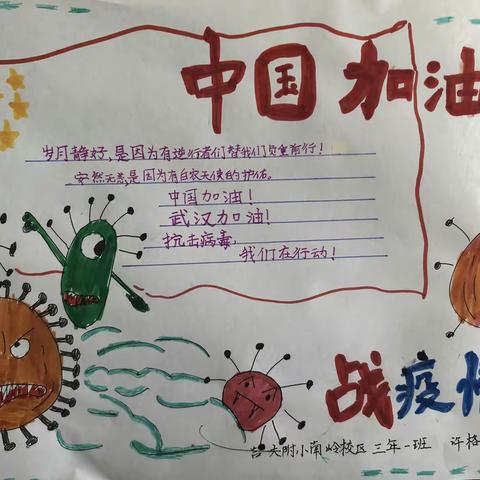 中国加油
岁月静好，是因为有逆行者们替我们负重前行！
安然无恙是因为有白衣天使的护佑。
中国加油！
武汉加油！
抗击病毒，
我们在行动！
战疫情
吉大附小南岭校区三年一班 许格